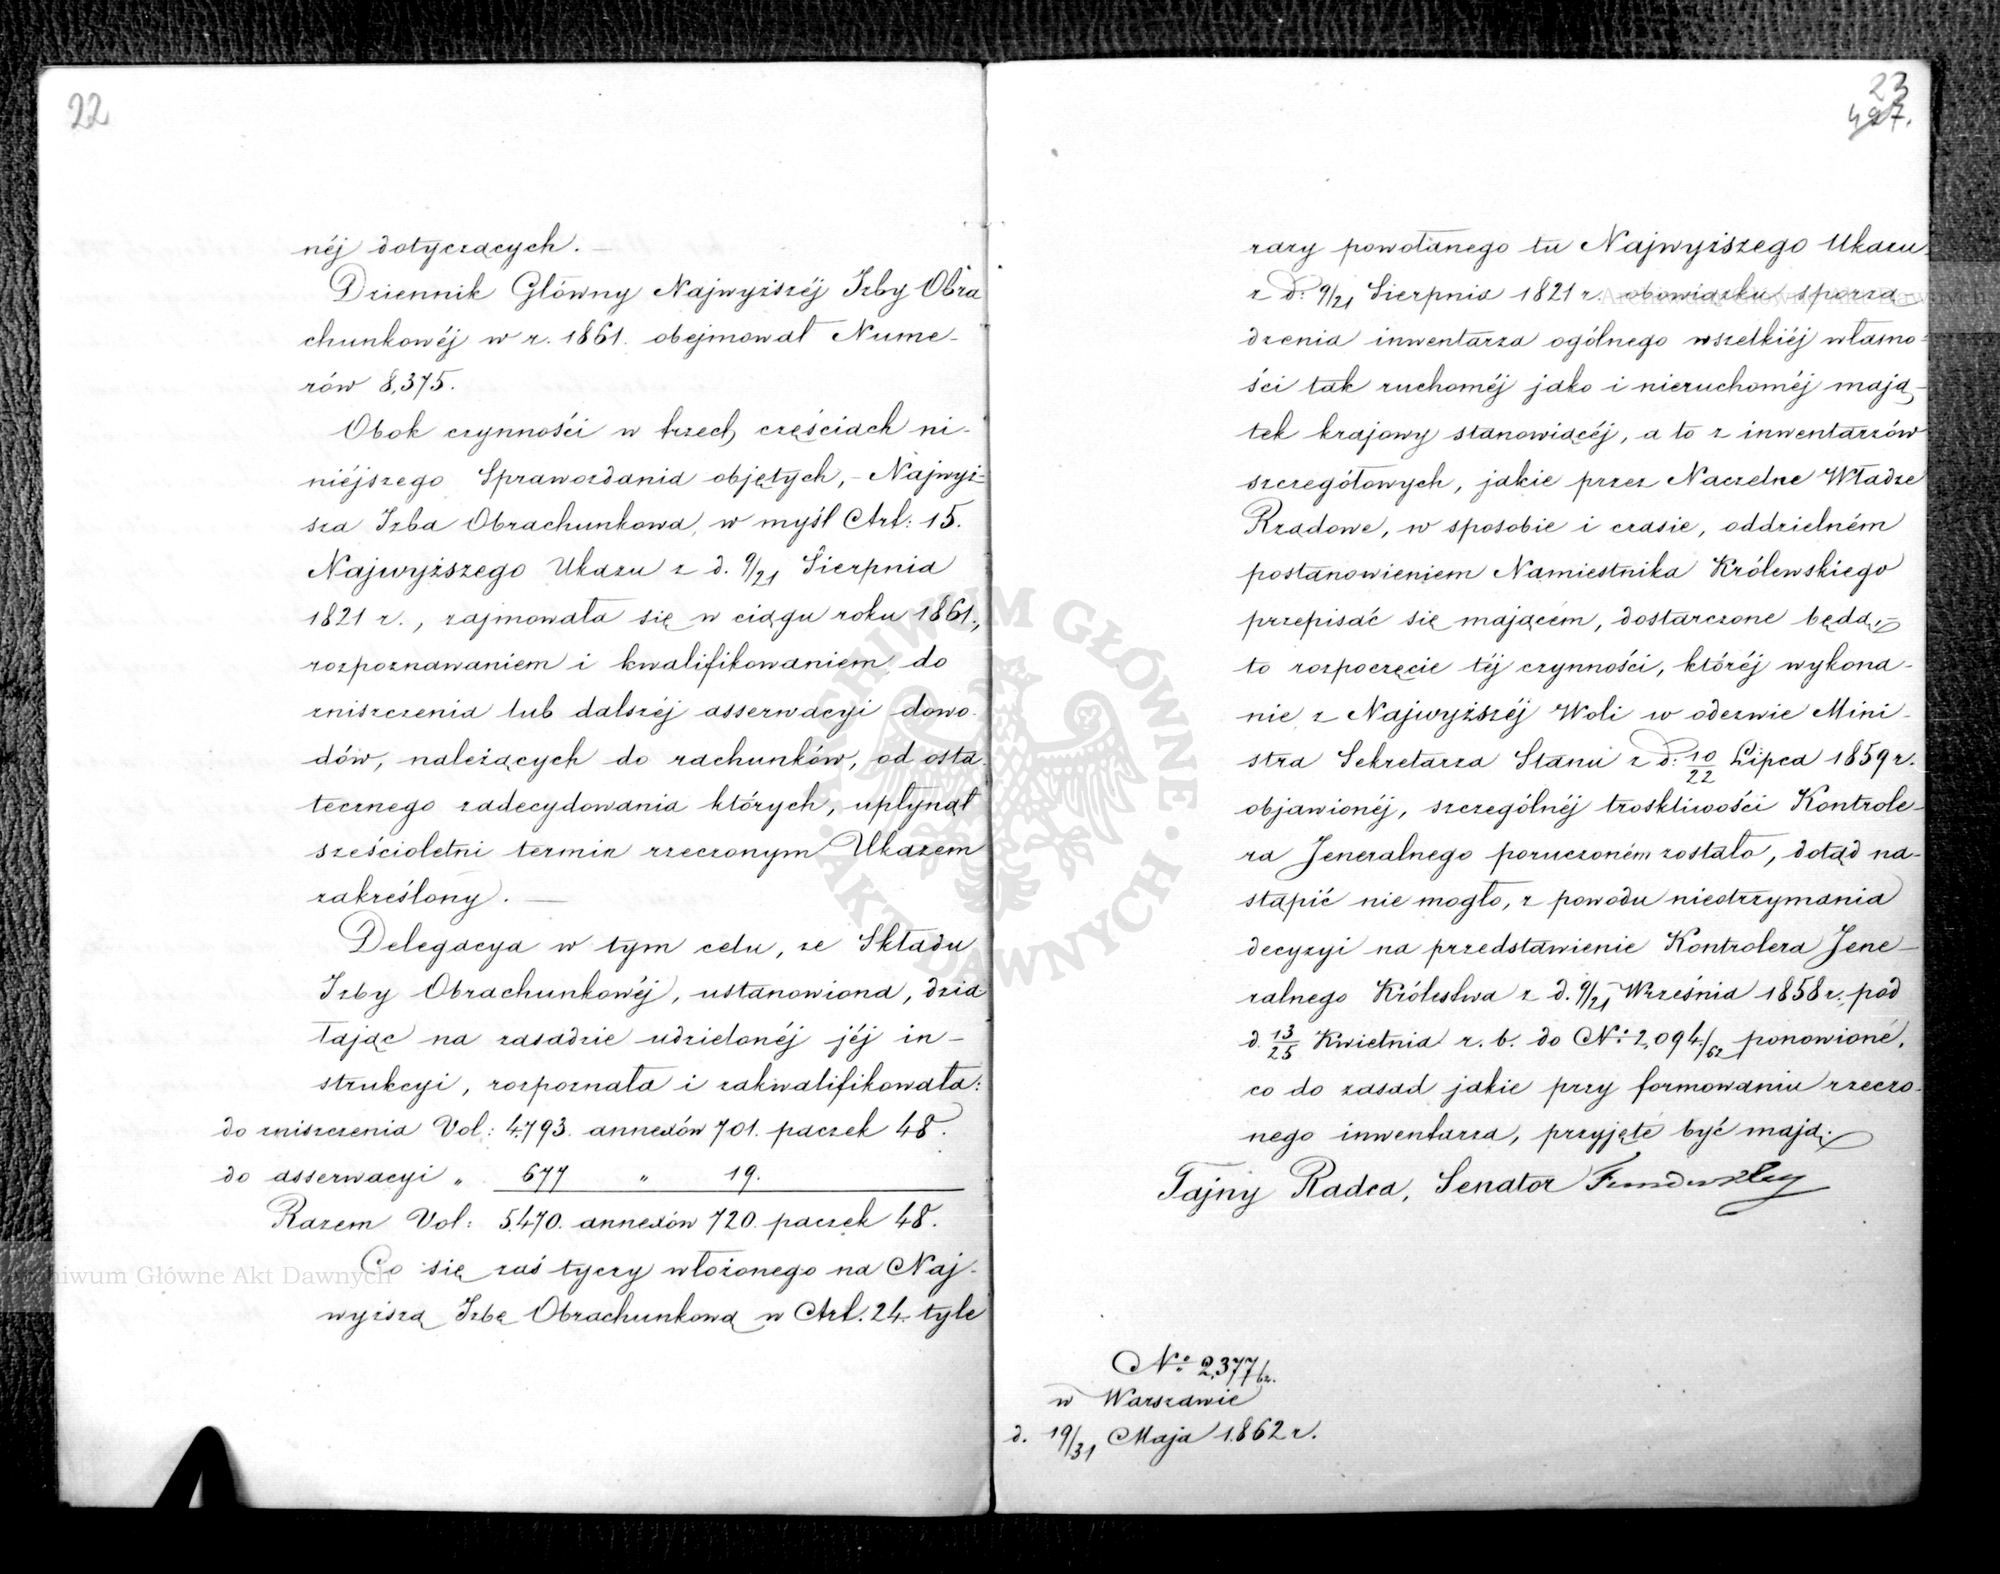 22
néj dotyczących. —
Dziennik Główny Najwyższéj Izby Obra
chunkowéj w r. 1861. obejmował Nume-
rów 8,375.
Obok czynności w trzech częściach ni-
niéjszego Sprawozdania objętych, - Najwyż-
sza Izba Obrachunkowa, w myśl Art: 15.
Najwyższego Ukazu z d. 9/21 Sierpnia
1821 r., zajmowała się w ciągu roku 1861.,
rozpoznawaniem i kwalifikowaniem do
zniszczenia lub dalszéj asserwacyi dowo-
dów, należących do rachunków, od osta-
tecznego zadecydowania których, upłynął
sześcioletni termin rzeczonym Ukazem
zakreślony. —
Delegacya w tym celu, ze Składu
Izby Obrachunkowéj, ustanowiona, dzia
łając na zasadzie udzielonéj jéj in-
strukcyi, rozpoznała i zakwalifikowała:
do zniszczenia Vol: 4,793. annexów 701. paczek 48.
do asserwacyi " 677 " 19.
Razem Vol: 5,470. annexów 720. paczek 48.
Co się zaś tyczy włożonego na Naj-
wyższą Izbę Obrachunkową w Art. 24. tyle
23
497.
razy powołanego tu Najwyższego Ukazu
z d: 9/21 Sierpnia 1821 r. obowiązku sporzą-
dzenia inwentarza ogólnego wszelkiéj własno-
ści tak ruchoméj jako i nieruchoméj mają-
tek krajowy stanowiącéj, a to z inwentarzów
szczegółowych, jakie przez Naczelne Władze
Rządowe, w sposobie i czasie, oddzielném
postanowieniem Namiestnika Królewskiego
przepisać się mającém, dostarczone będą,-
to rozpoczęcie téj czynności, któréj wykona-
nie z Najwyższéj Woli w odezwie Mini-
stra Sekretarza Stanu z d: 10/22 Lipca 1859 r.
objawionéj, szczególnéj troskliwości Kontrole-
ra Jeneralnego poruczoném zostało, dotąd na-
stąpić nie mogło, z powodu nieotrzymania
decyzyi na przedstawienie Kontrolera Jene-
ralnego Królestwa z d. 9/21 Września 1858 r. pod
d. 13/25 Kwietnia r. b. do No. 2,094/62 ponowioné,
co do zasad jakie przy formowaniu rzeczo-
nego inwentarza, przyjęte być mają.
Tajny Radca, Senator Fundukley
No. 2,377/62.
w Warszawie
d. 19/31 Maja 1862 r.
Archiwum Główne Akt Dawnych
Archiwum Główne Akt Dawnych
ARCHIWUM GŁÓWNE · AKT DAWNYCH ·